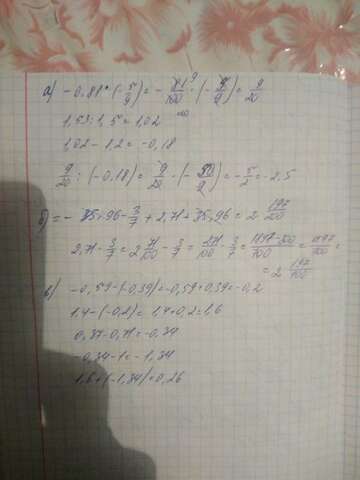 а) -0,81 · (-5/9) = -81/100 · (-5/9) = 9/20
1,53 : 1,5 = 1,02
1,02 - 1,2 = -0,18
9/20 : (-0,18) = 9/20 · (-50/9) = -5/2 = -2,5
б) = -35,96 - 3/7 + 2,71 + 35,96 = 2 197/700
2,71 - 3/7 = 2 71/100 - 3/7 = 271/100 - 3/7 = 1897-300/700 = 1597/700 =
= 2 197/700
в) -0,59 - (-0,39) = -0,59 + 0,39 = -0,2
1,4 - (-0,2) = 1,4 + 0,2 = 1,6
0,37 - 0,71 = -0,34
-0,34 - 1 = -1,34
1,6 + (-1,34) = 0,26